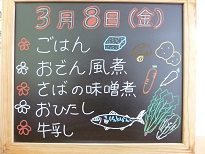 3月8日(金)
ごはん
おでん風煮
さばの味噌煮
おひたし
牛乳